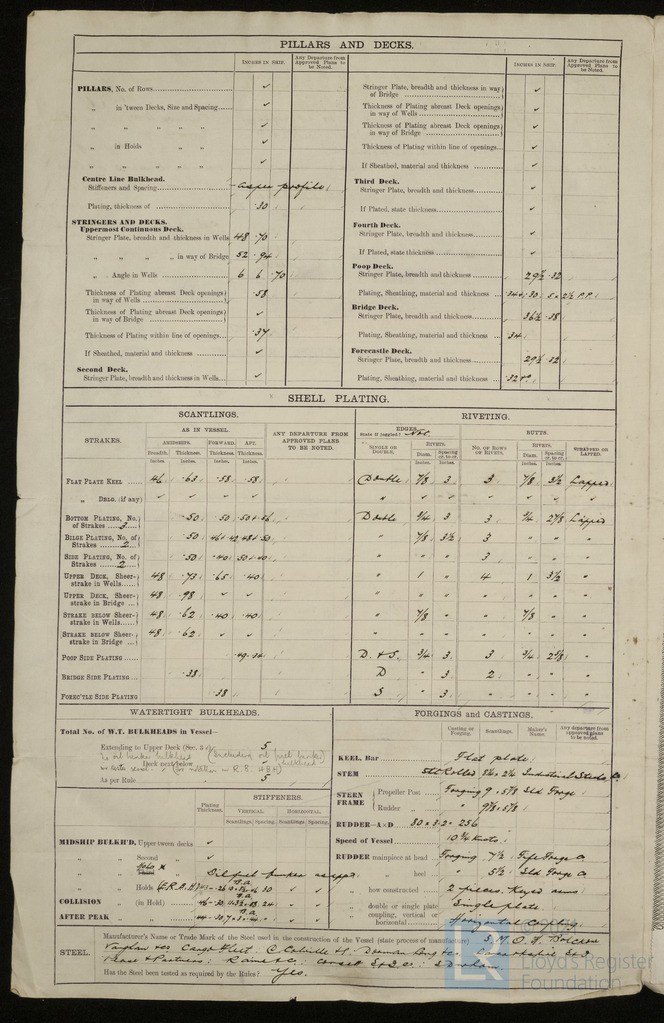 PILLARS AND DECKS.
INCHES IN SHIP.
Any Departure from Approved Plans to be Noted.
PILLARS, No. of Rows
„ in 'tween Decks, Size and Spacing
„ „ „ „
„ in Holds
„ „ „ „
Centre Line Bulkhead.
Stiffeners and Spacing as per profile
Plating, thickness of .30
STRINGERS AND DECKS.
Uppermost Continuous Deck.
Stringer Plate, breadth and thickness in Wells 48 .70
„ „ „ „ in way of Bridge 52 .94
„ Angle in Wells 6 6 .70
Thickness of Plating abreast Deck openings in way of Wells .58
Thickness of Plating abreast Deck openings in way of Bridge
Thickness of Plating within line of openings .37
If Sheathed, material and thickness
Second Deck.
Stringer Plate, breadth and thickness in Wells
INCHES IN SHIP.
Any Departure from Approved Plans to be Noted.
Stringer Plate, breadth and thickness in way of Bridge
Thickness of Plating abreast Deck openings in way of Wells
Thickness of Plating abreast Deck openings in way of Bridge
Thickness of Plating within line of openings
If Sheathed, material and thickness
Third Deck.
Stringer Plate, breadth and thickness
If Plated, state thickness
Fourth Deck.
Stringer Plate, breadth and thickness
If Plated, state thickness
Poop Deck.
Stringer Plate, breadth and thickness 29½ .32
Plating, Sheathing, material and thickness 2½ P.P.
Bridge Deck.
Stringer Plate, breadth and thickness 36½ .38
Plating, Sheathing, material and thickness .34
Forecastle Deck.
Stringer Plate, breadth and thickness 29½ .32
Plating, Sheathing, material and thickness .32
SHELL PLATING.
SCANTLINGS.
RIVETING.
STRAKES.
AS IN VESSEL.
AMIDSHIPS. FORWARD. AFT.
Breadth. Thickness. Thickness. Thickness.
Inches. Inches. Inches. Inches.
ANY DEPARTURE FROM APPROVED PLANS TO BE NOTED.
EDGES.
State if joggled? Not
SINGLE OR DOUBLE.
RIVETS.
Diam. Spacing cr. to cr.
BUTTS.
No. OF ROWS OF RIVETS.
RIVETS.
Diam. Spacing cr. to cr.
STRAPPED OR LAPPED.
FLAT PLATE KEEL 46 .63 .58 .58 Double 7/8 3 3 7/8 3½ Lapped
„ DBLG. (if any)
BOTTOM PLATING, No. of Strakes 3 .50 .50 Double 3/4 3 3 3/4 2 5/8 Lapped
BILGE PLATING, No. of Strakes 2 .50 „ 7/8 3½ 3 „ „ „
SIDE PLATING, No. of Strakes 2 .50 3
UPPER DECK, Sheerstrake in Wells 48 .73 .65 .40 „ 1 „ 4 1 3½ „
UPPER DECK, Sheerstrake in Bridge 48 .98
STRAKE BELOW Sheerstrake in Wells 48 .62 .40 .40 „ 7/8 „ „ 7/8
STRAKE BELOW Sheerstrake in Bridge 48 .62
POOP SIDE PLATING D. & S. 3/4 3 3 3/4 2 5/8 „
BRIDGE SIDE PLATING .38 D „ 3 2
FOREC'TLE SIDE PLATING .38 S „ 3
WATERTIGHT BULKHEADS.
Total No. of W.T. BULKHEADS in Vessel—
Extending to Upper Deck (Sec. 3 c) 5
Deck next below
As per Rule 5
Plating Thickness.
STIFFENERS.
VERTICAL. HORIZONTAL.
Scantlings. Spacing. Scantlings. Spacing.
MIDSHIP BULKH'D, Upper tween decks
„ „ Second „
„ „ Third „ Oil fuel bunker as app.
„ „ Holds
COLLISION „ (in Hold)
AFTER PEAK „
FORGINGS AND CASTINGS.
Casting or Forging. Scantlings. Maker's Name. Any departure from approved plans to be noted.
KEEL, Bar Flat plate
STEM Stl Rolled Industrial Steels
STERN FRAME Propeller Post Forging 9 x 5 7/8 Sld Forge
Rudder „ „
RUDDER—A×D 80 × 3.2 = 256
Speed of Vessel 10¾ Knots
RUDDER mainpiece at head Forging 7½ Fife Forge Co
„ „ heel „ 5½ Sld Forge Co
„ how constructed 2 pieces. Keyed arms
„ double or single plate Single plate
„ coupling, vertical or horizontal Horizontal Coupling
STEEL.
Manufacturer's Name or Trade Mark of the Steel used in the construction of the Vessel (state process of manufacture) S.M. O.H. Bolckow
Vaughan & Co Cargo Fleet D. Colville & Dorman Long & Co
Pease & Partners; Raine & Co; Consett
Has the Steel been tested as required by the Rules? Yes.
Lloyd's Register
Foundation